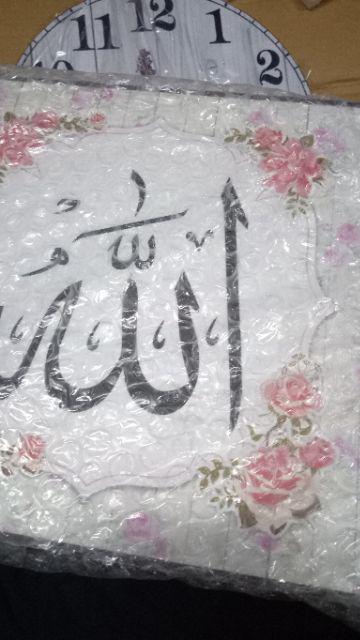 10 11 12 1 2
الله